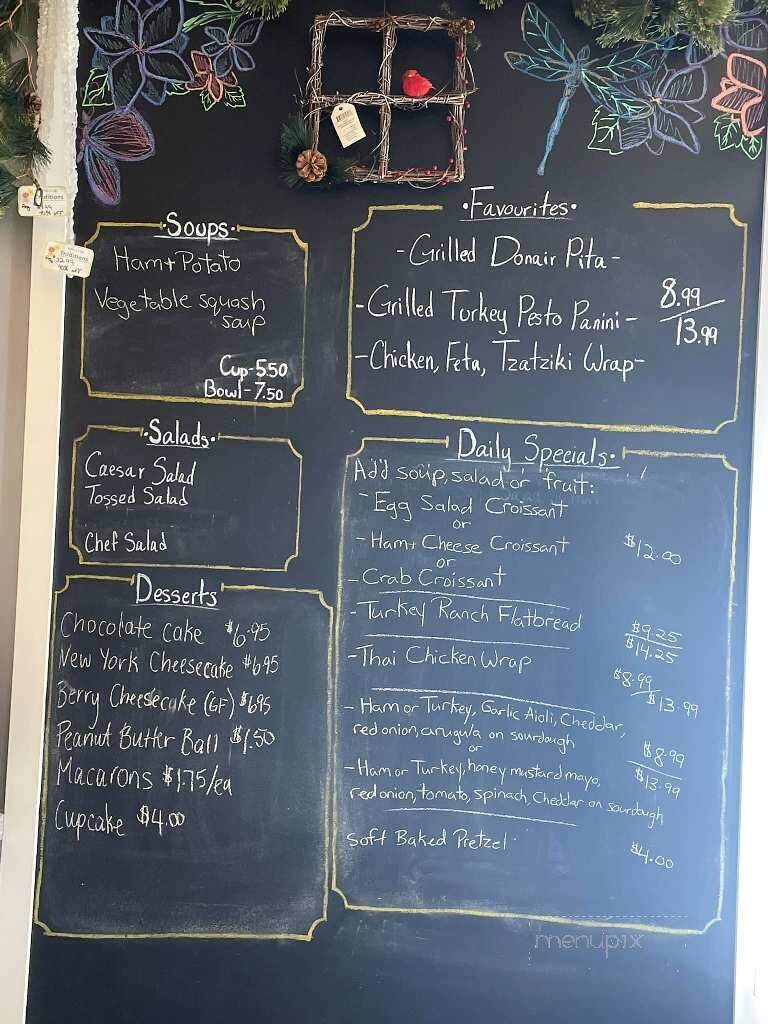 ·Soups·
Ham + Potato
Vegetable squash
soup
Cup-5.50
Bowl-7.50
·Salads·
Caesar Salad
Tossed Salad
Chef Salad
Desserts
Chocolate Cake $6.95
New York Cheesecake $6.95
Berry Cheesecake (GF) $6.95
Peanut Butter Ball $1.50
Macarons $1.75/ea
Cupcake $4.00
·Favourites·
-Grilled Donair Pita-
-Grilled Turkey Pesto Panini-
8.99
13.99
-Chicken, Feta, Tzatziki Wrap-
Daily Specials·
Add soup, salad or fruit:
-Egg Salad Croissant
or
-Ham + Cheese Croissant $12.00
or
-Crab Croissant
-Turkey Ranch Flatbread $9.25
$14.25
-Thai Chicken Wrap $8.99
$13.99
-Ham or Turkey, Garlic Aioli, Cheddar,
red onion, arugula on sourdough
or
$8.99
$13.99
-Ham or Turkey, honey mustard mayo,
red onion, tomato, spinach, Cheddar on sourdough
Soft Baked Pretzel $4.00
menupix